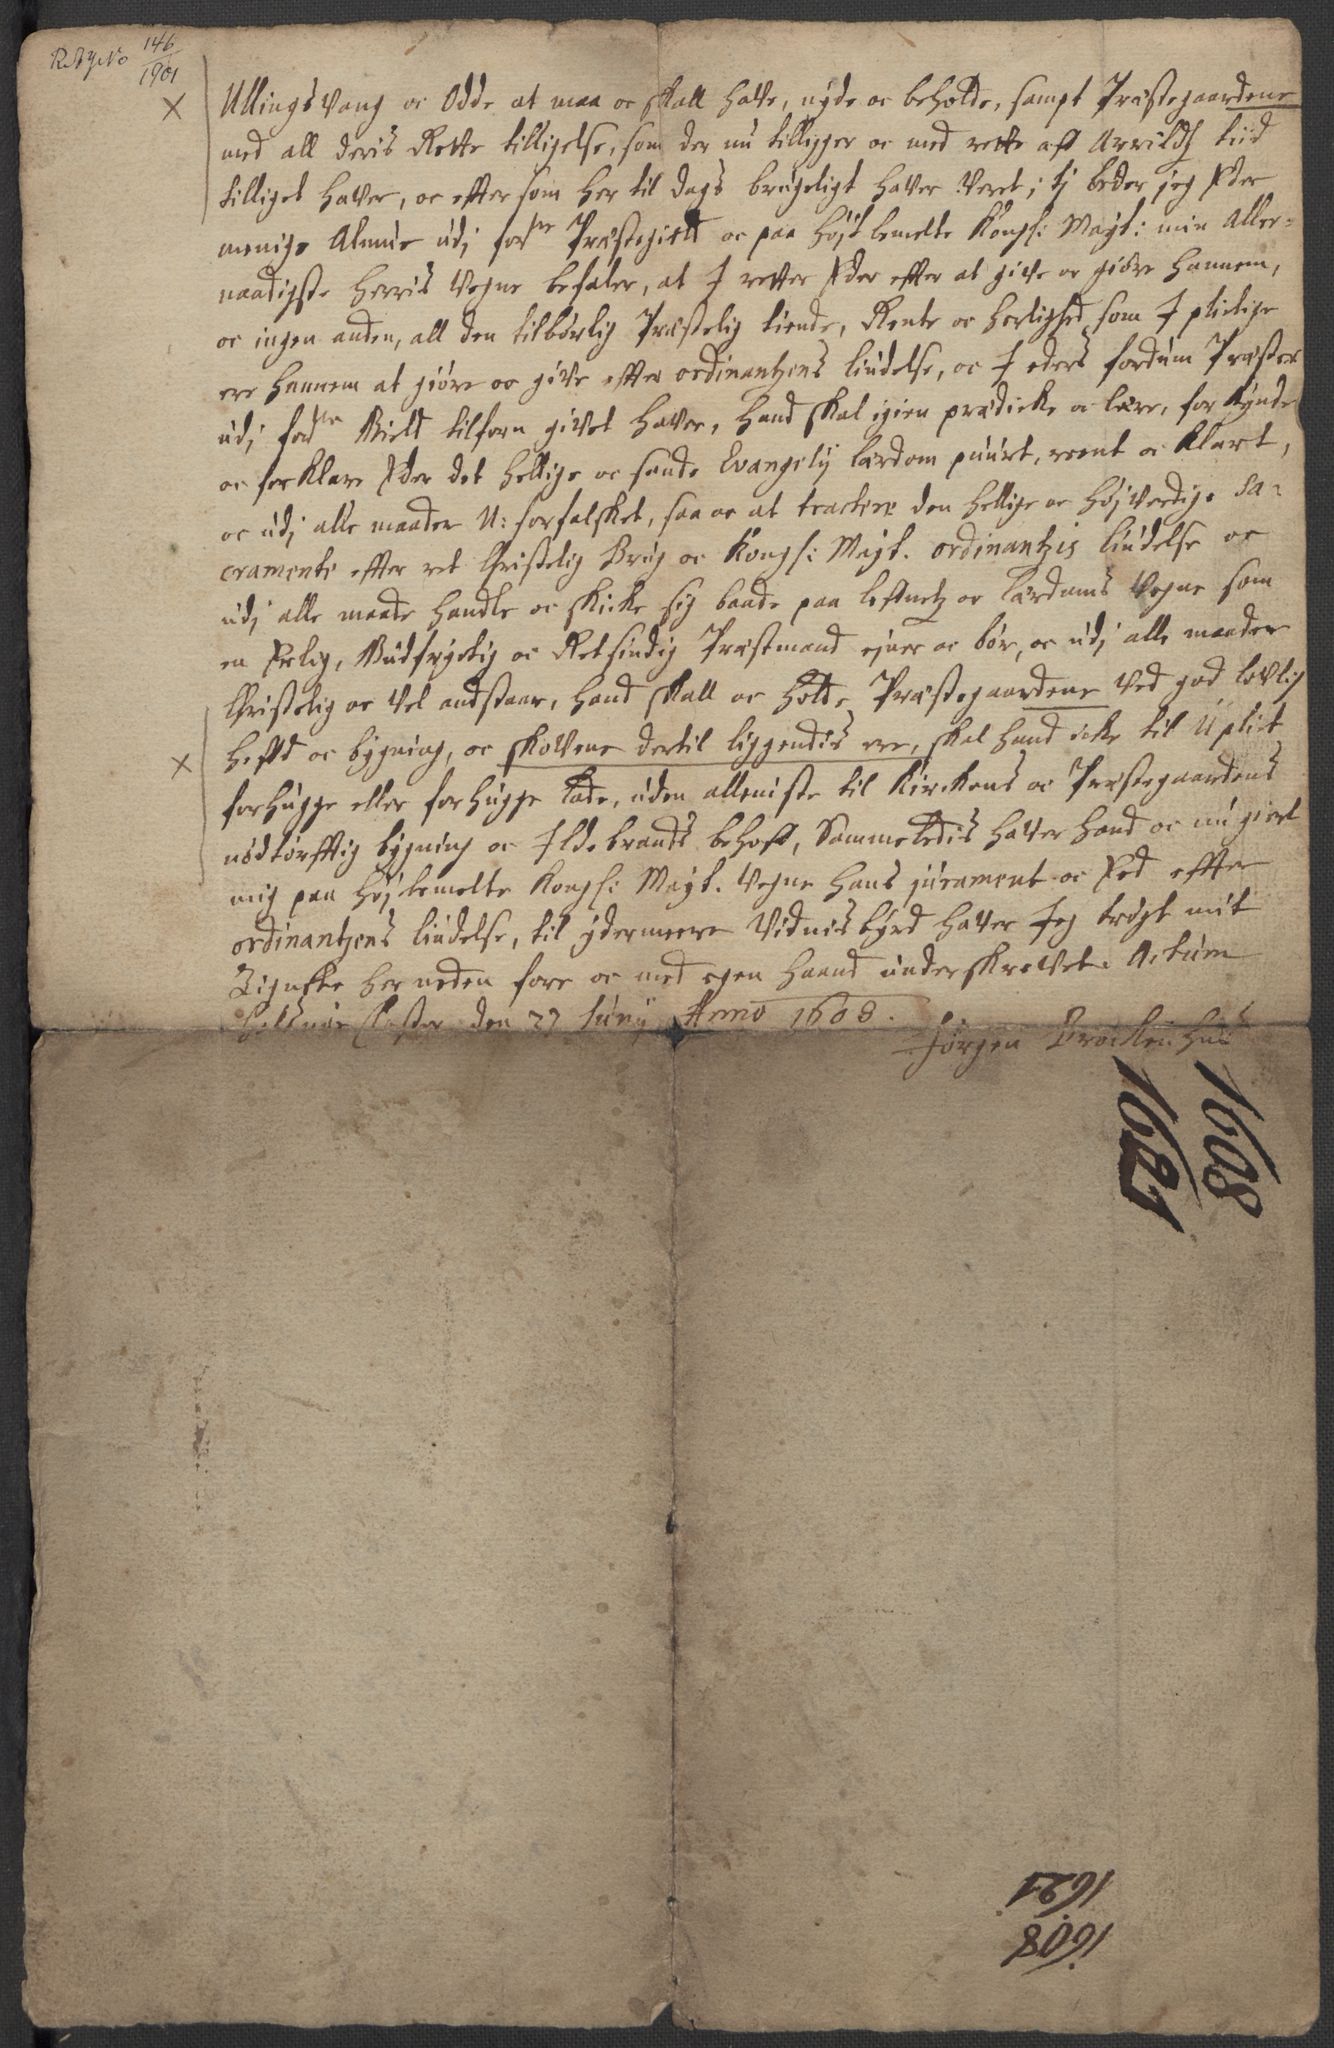 R.A.J.No 146/1901
Ullingsvang oc Odde at maa oc skall hafve, nyde oc beholde, sampt Præstegaardene
med all deris Rette tilligelse, som der nu tilligger oc med rette aff Arrilds tiid
tilliget hafver, oc efftersom her til dags brugeligt hafver veret; tj beder jeg Eder
menige Almue udj forne Præstegield oc paa Højstbemelte Kongl: Mayt: min Aller-
naadigste Herris Vegne befaler, at I retter Eder effter at give oc giöre hannem,
oc ingen anden, all den tilbörlig Præstelig tiende, Rente oc herlighed som I plictige
ere hannem at giöre oc give effter ordinantzens liudelse, oc I eders fordum Præster
udj forne Gield tilforn givet hafver, hand skal igien prædicke oc lære, forkynde
oc forklare Eder det hellige oc sande Evangelij lærdom puurt, reent oc klart,
oc udj alle maader U:forfalsket, saa oc at tractere den hellige oc højverdige Sa-
cramente effter ret Christelig Brug oc Kongl: Mayt. ordinantzis liudelse oc
udj alle maade handle oc skicke sig baade paa leffnetz oc lærdoms vegne som
en Erlig, Gudfryctig oc Retsindig Præstmand eyner oc bör, oc udj alle maader
Christelig oc vel andstaar, hand skall oc holde Præstegaardene ved god lovlig
hefd oc bygning, oc skovene dertil liggendis ere, skal hand icke til Uplict
forhugge eller forhugge lade, uden alleniste til Kirckens oc Præstegaardens
nödtörfftig bygning oc Ildebrands behoff, Sammeledis hafver hand oc nu giort
mig paa Højbemelte Kongl: Mayt. Vegne hans jurament oc Eed effter
ordinantzens liudelse, til ydermeere Vidnisbyrd hafver Jeg trögt mit
Zignette her neden fore oc med egen haand underskrevet. Actum
Closter den 27 Junij Anno 1608.
Jörgen Brockenhuus
1608
1621
1621
1608